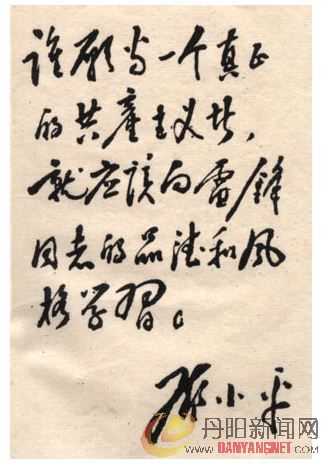 谁愿当一个真正
的共产主义者，
就应该向雷锋
同志的品德和风
格学习。
邓小平
丹阳新闻网
DANYANGNEWS.NET